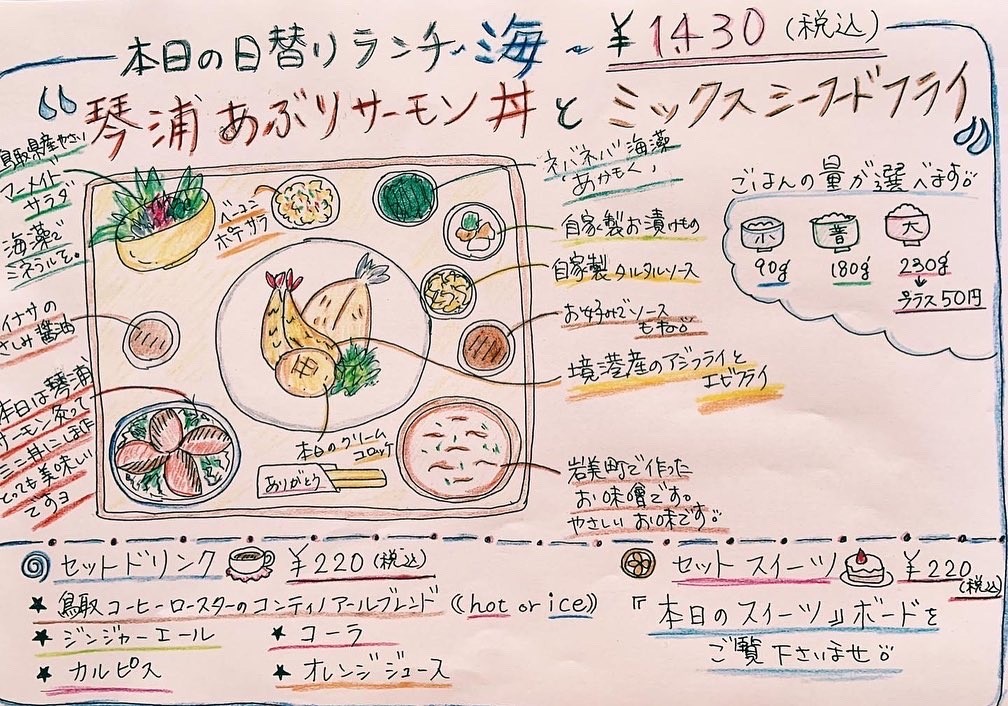 本日の日替りランチ~海~ ¥1430(税込)
琴浦あぶりサーモン丼とミックスシーフードフライ
鳥取県産やさい
マーメイド
サラダ
海藻で
ミネラルを。
イナサの
さしみ醤油
本日は琴浦
サーモン炙って
ミニ丼にしました
とっても美味しい
ですヨ
ベーコン
ポテサラ
ネバネバ海藻
あかもく
自家製お漬けもの
自家製タルタルソース
お好みでソース
もね
境港産のアジフライと
エビフライ
本日のクリーム
コロッケ
ありがとう
岩美町で作った
お味噌です。
やさしいお味です
ごはんの量が選べます
小 普 大
90g 180g 230g
プラス50円
セットドリンク ¥220(税込)
★ 鳥取コーヒーロースターのコンティノアールブレンド (hot or ice)
★ ジンジャーエール ★ コーラ
★ カルピス ★ オレンジジュース
セットスイーツ ¥220(税込)
『本日のスイーツ』ボードを
ご覧下さいませ